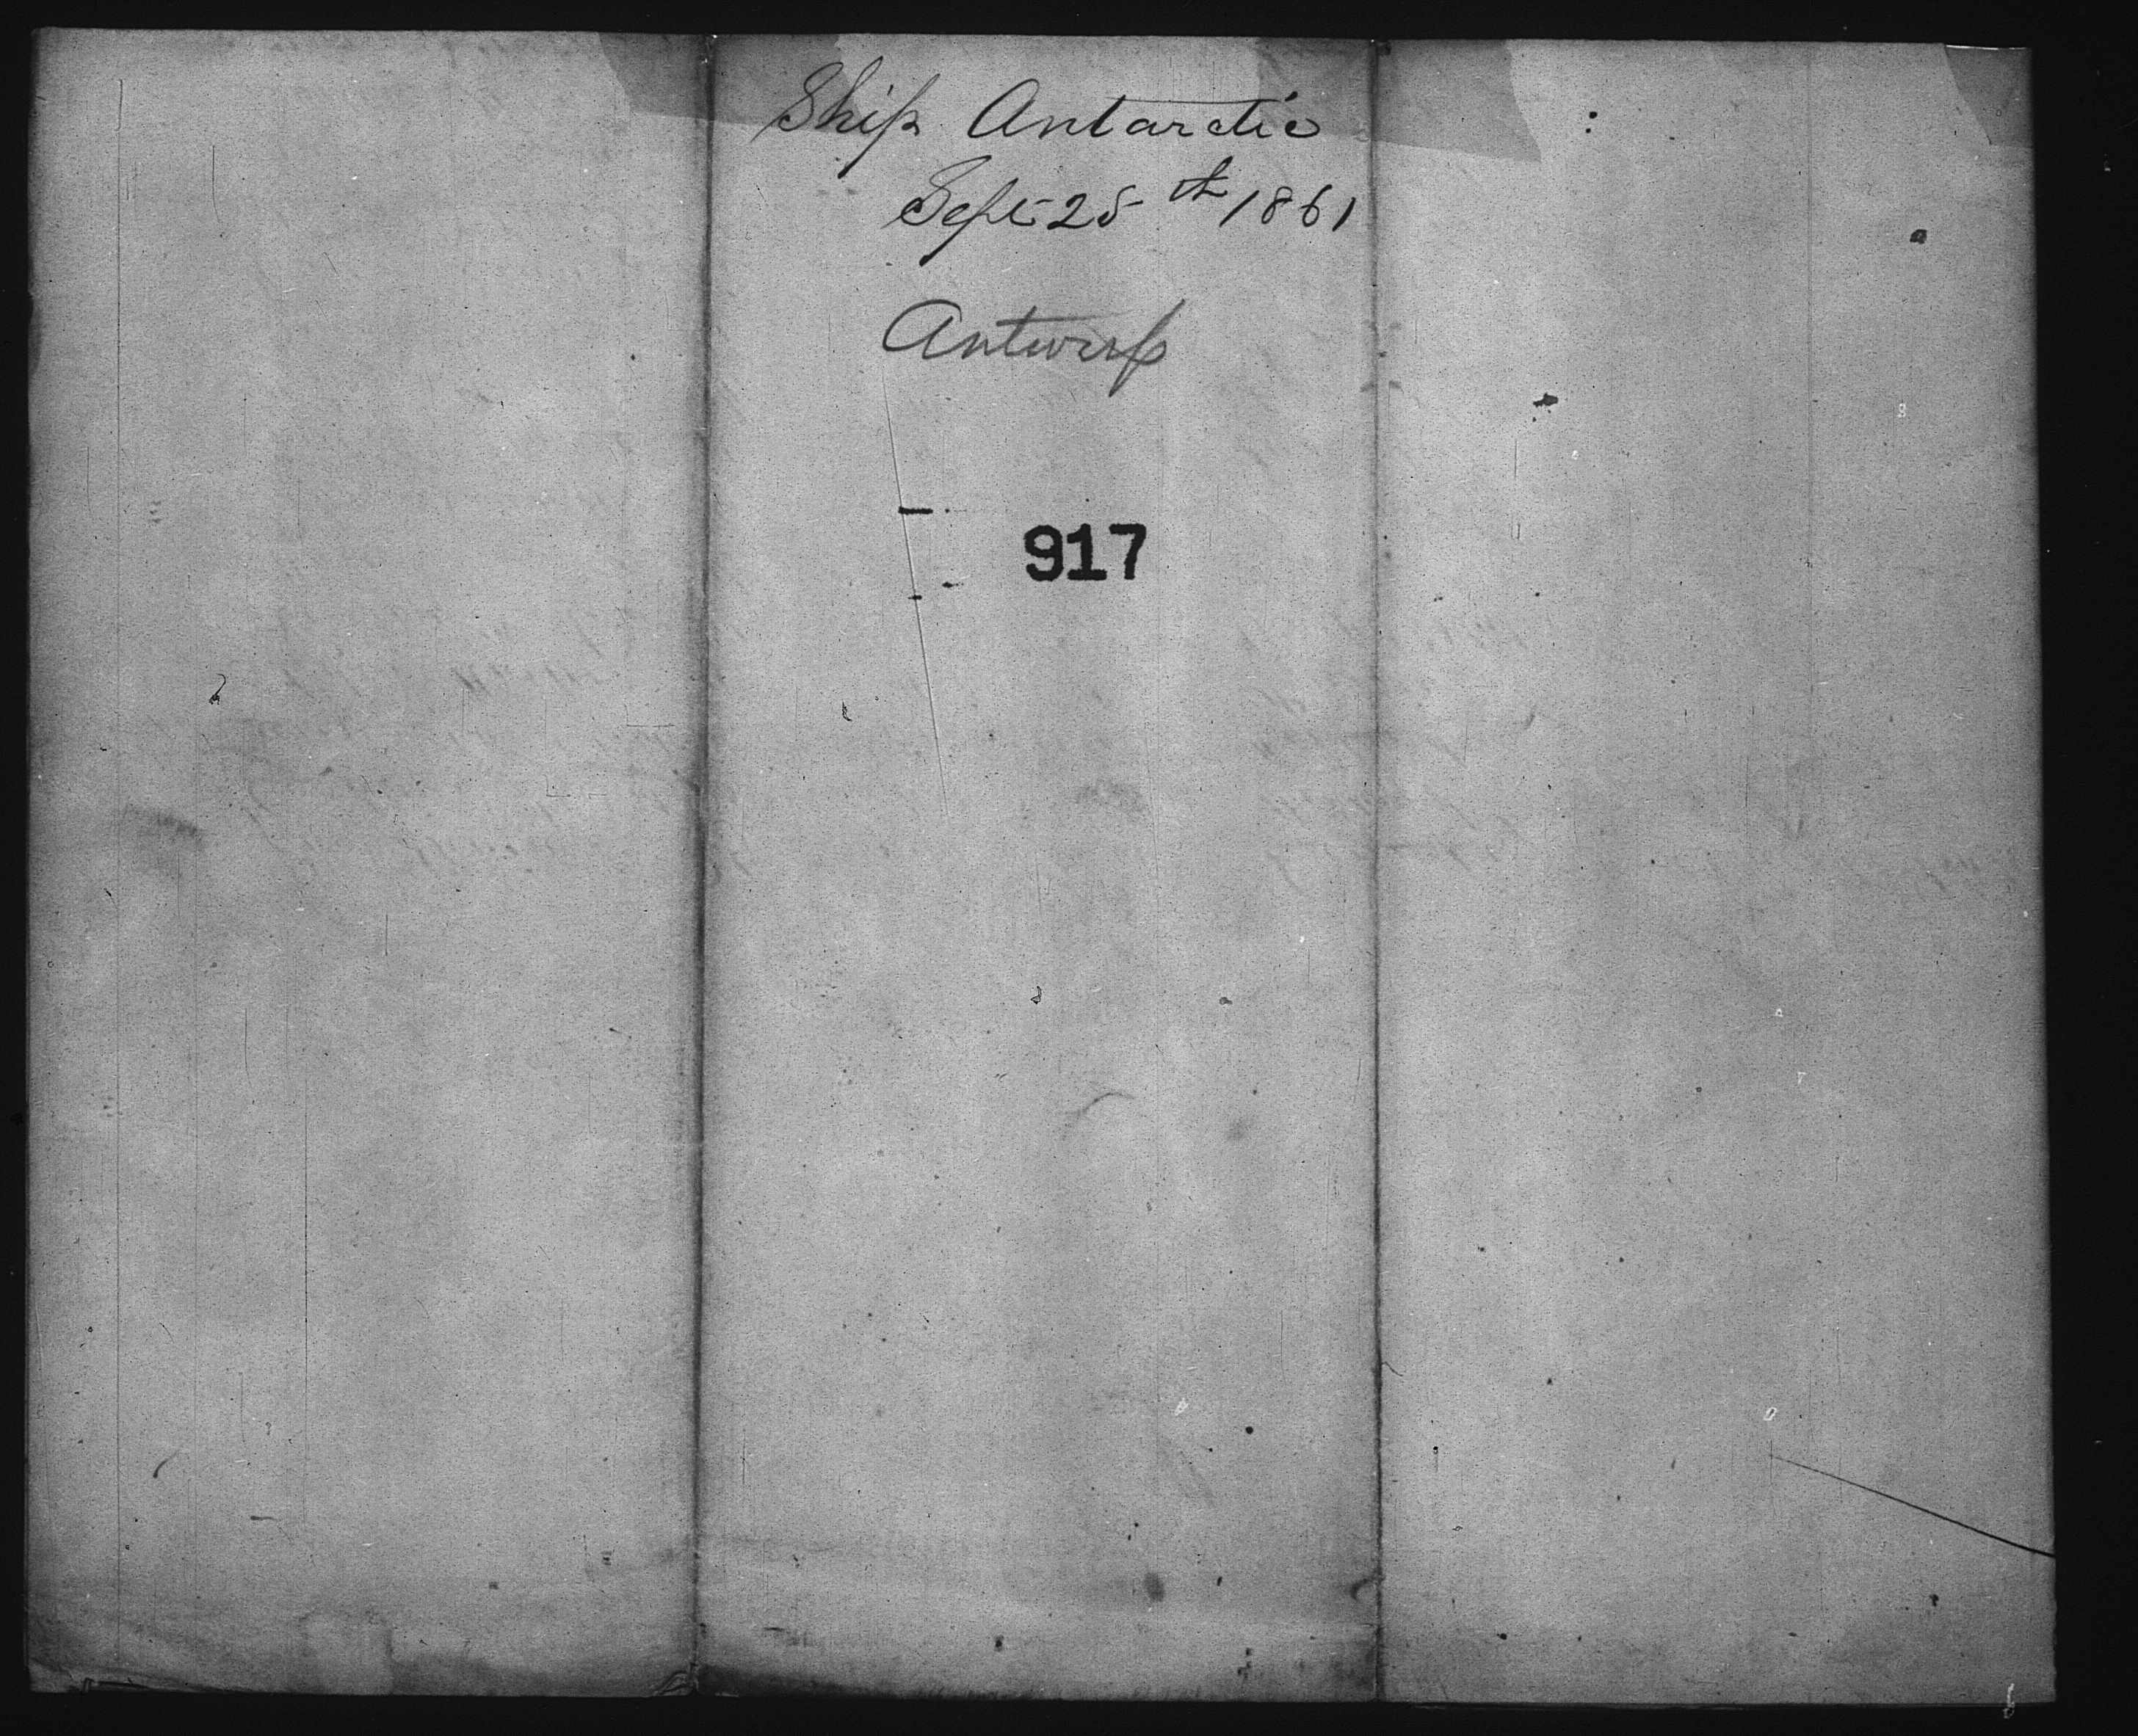 Ship Antarctic
Sept 25th 1861
Antwerp
917